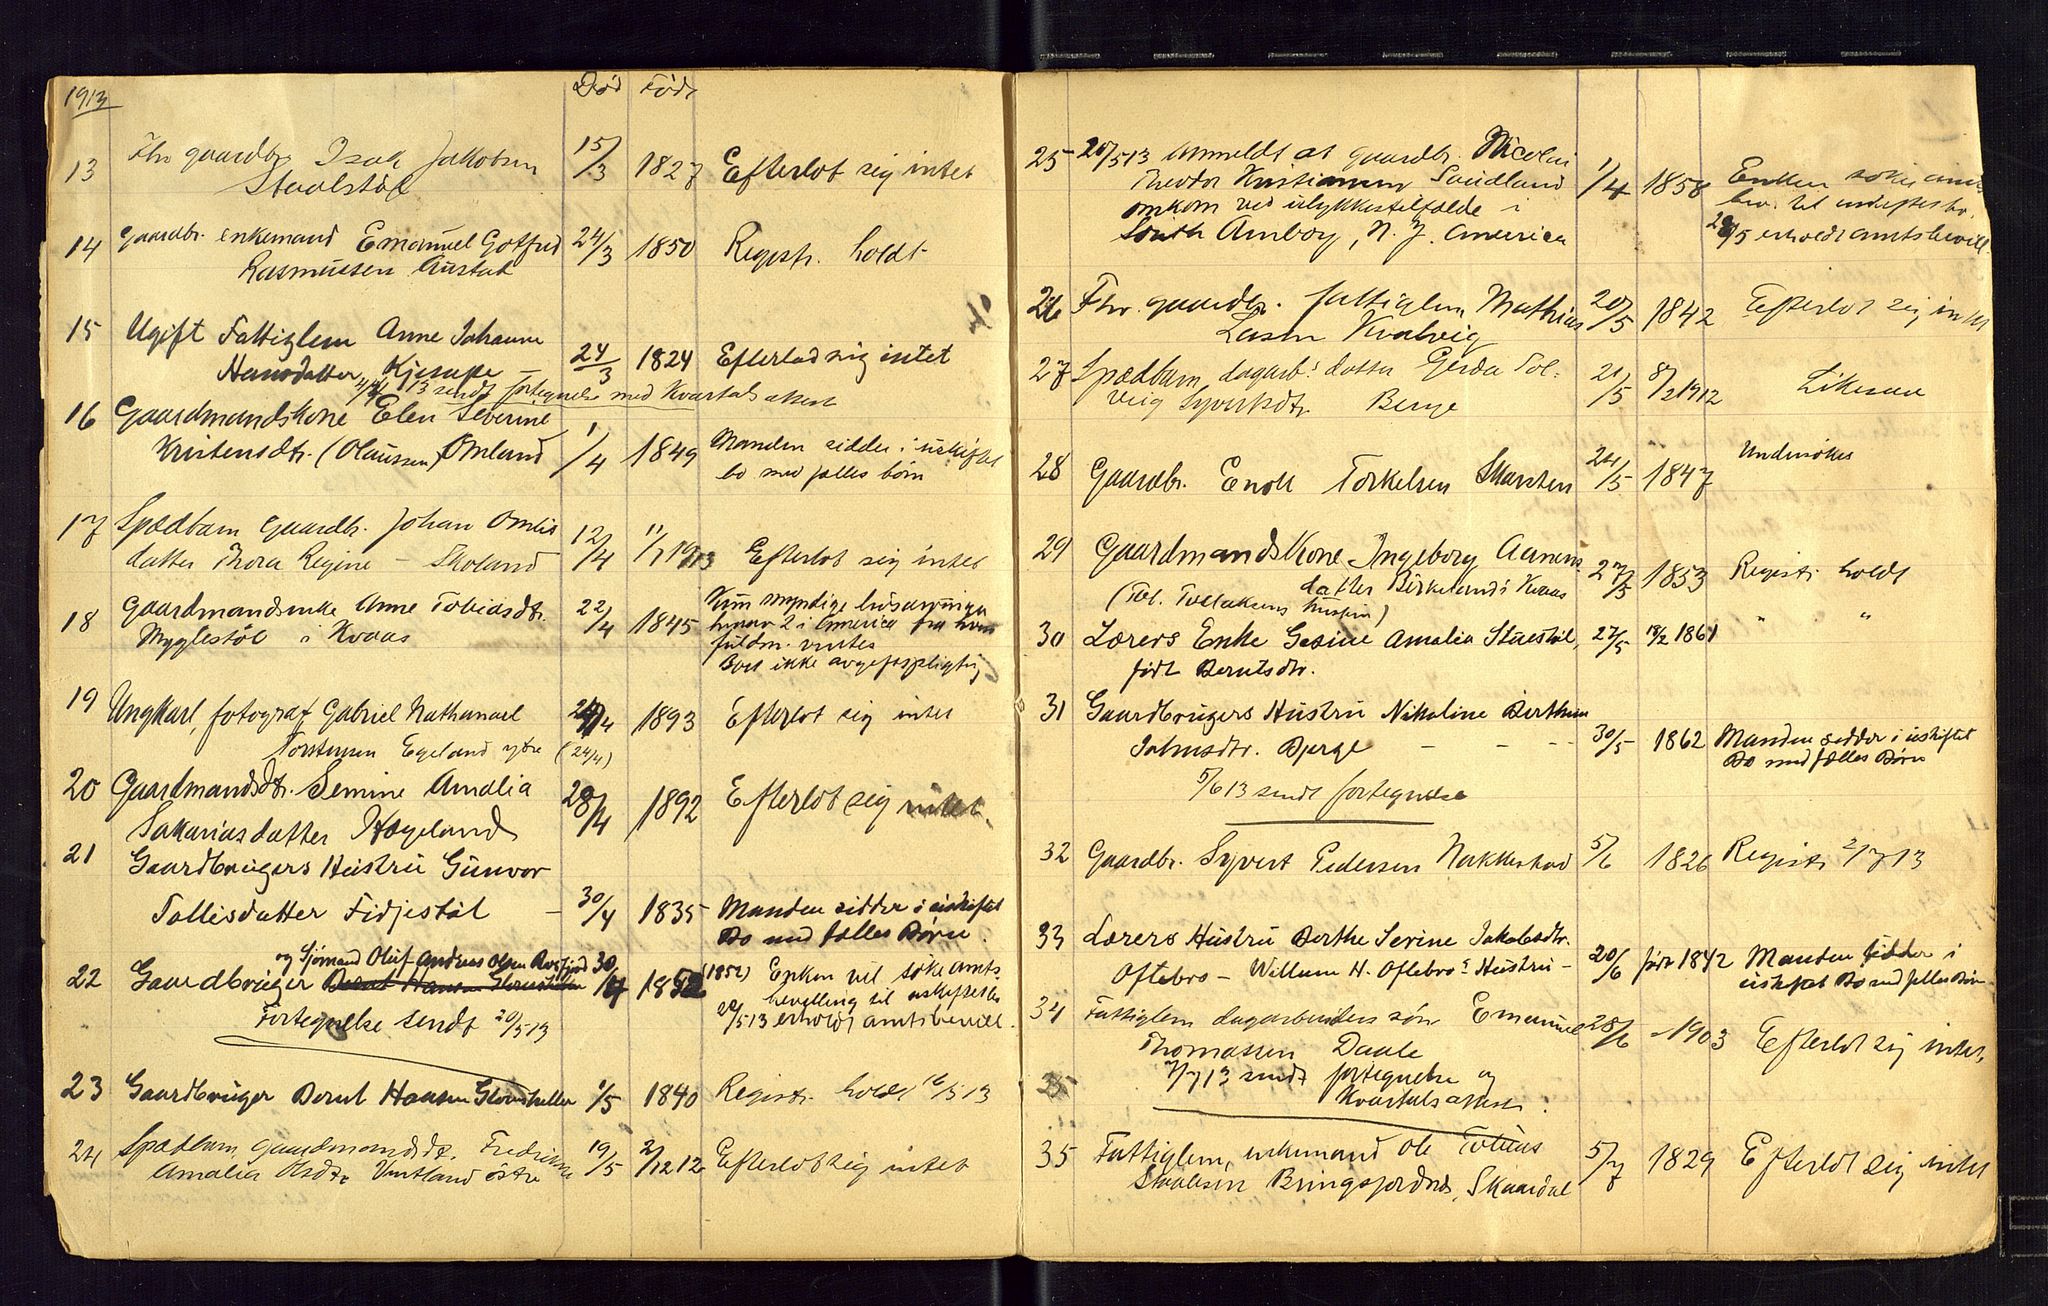 1913
Død Født
13 Fhv gaardbr. Isak Jakobsen 15/3 1827 Efterlot sig intet
Staalstøl
14 gaardbr. enkemand Emanuel Gotfred 24/3 1850 Registr. holdt
Rasmussen Austad
15 Ugift Fattiglem Anne Johanne
Hansdatter 24/3 1824 Efterlod sig intet
4/4 13 sendt fortegnelse med Kvartalsattest
16 Gaardmandskone Elen Severine
Kristensdtr. (Olaussen) Omland 1/4 1849 Manden sidder i uskiftet
bo med fælles børn
17 Spædbarn gaardbr. Johan Omlis
datter Thora Regine – Skoland 12/4 11/1 1913 Efterlot sig intet
18 Gaardmandsenke Anne Tobiasdtr. 22/4 1845 Kun myndige livsarvinger
Mygglestøl i Kvaas hvorav 2 i Amerika fra hvem
fuldm. ventes
Boet ikke avgiftspligtig
19 Ungkarl, fotograf Gabriel Nathanael 24/4 1893 Efterlot sig intet
Torstensen Egeland ytre (24/4)
20 Gaardmandsdtr. Semine Amalia 28/4 1892 Efterlot sig intet.
Sakariasdatter Hægeland
21 Gaardbrugers Hustru Gunvor
Tollisdatter Fidjestøl – 30/4 1835 Manden sidder i uskiftet
Bo med fælles Børn.
og Sjømand Oluf Andreas Olsen Rosfjord 30/4
22 Gaardbruger Bernt Hansen 1852 (1852) Enken vil søke amts
bevilling til uskiftet bo
Fortegnelse sendt 20/5 13 28/5 13 erholdt amtsbevill.
23 Gaardbruger Bernt Hansen 1/5 1840 Registr. holdt 16/5 13
24 Spædbarn gaardmandsdt. Fredrikke 19/5 2/12 12 Efterlot sig intet
Amalia Olsdtr Vintland østre
25 20/5 13 anmeldt at gaardbr. Nicolai
Theodor Kristiansen Sandland 1/4 1858 Enken søker amts
omkom ved ulykkestilfælde i bev. til uskiftet bo.
South Amboy, N. J. America 28/5 erholdt amtsbevill.
26 Fhv. gaardbr. fattiglem Mathias 20/5 1842 Efterlot sig intet
Lasen Kvalvig
27 Spædbarn, dagarb.s datter Gerda Sol- 21/5 8/2 1912 Likesaa
veig Syvertsdtr. Berge
28 Gaardbr. Enok Torkelsen Skarsten 24/5 1847 Undersøkes
29 Gaardmandskone Ingeborg Aanens-
datter Birkeland i Kvaas 27/5 1853 Registr. holdt
(Tol. Tollaksens hustru)
30 Lærers Enke Gesine Amalia Stuestøl, 27/5 18/2 1861 " "
født Berntsdtr.
31 Gaardbrugers Hustru Nikoline Berthine
Johnsdtr. Berge – – – 30/5 1862 Manden sidder i uskiftet
Bo med fælles Børn
5/6 13 sendt fortegnelse
32 Gaardbr. Syvert Pedersen Nakkestad 5/6 1826 Registr 2/7 13
33 Lærers Hustru Berthe Serine Jakobsdtr.
Oftebro – Willum H. Oftebros Hustru – 20/6 født 1842 Manden sidder i
uskiftet Bo med fælles Børn
34 Fattiglem dagarbeiders søn Emanuel 28/6 – 1903 Efterlot sig intet.
Thomassen Daale
7/7 13 sendt fortegnelse og
35 Kvartalsattest.
35 Fattiglem, enkemand Ole Tobias 5/7 1829 Efterlot sig intet
Staalesen Bringsjord, Skaardal